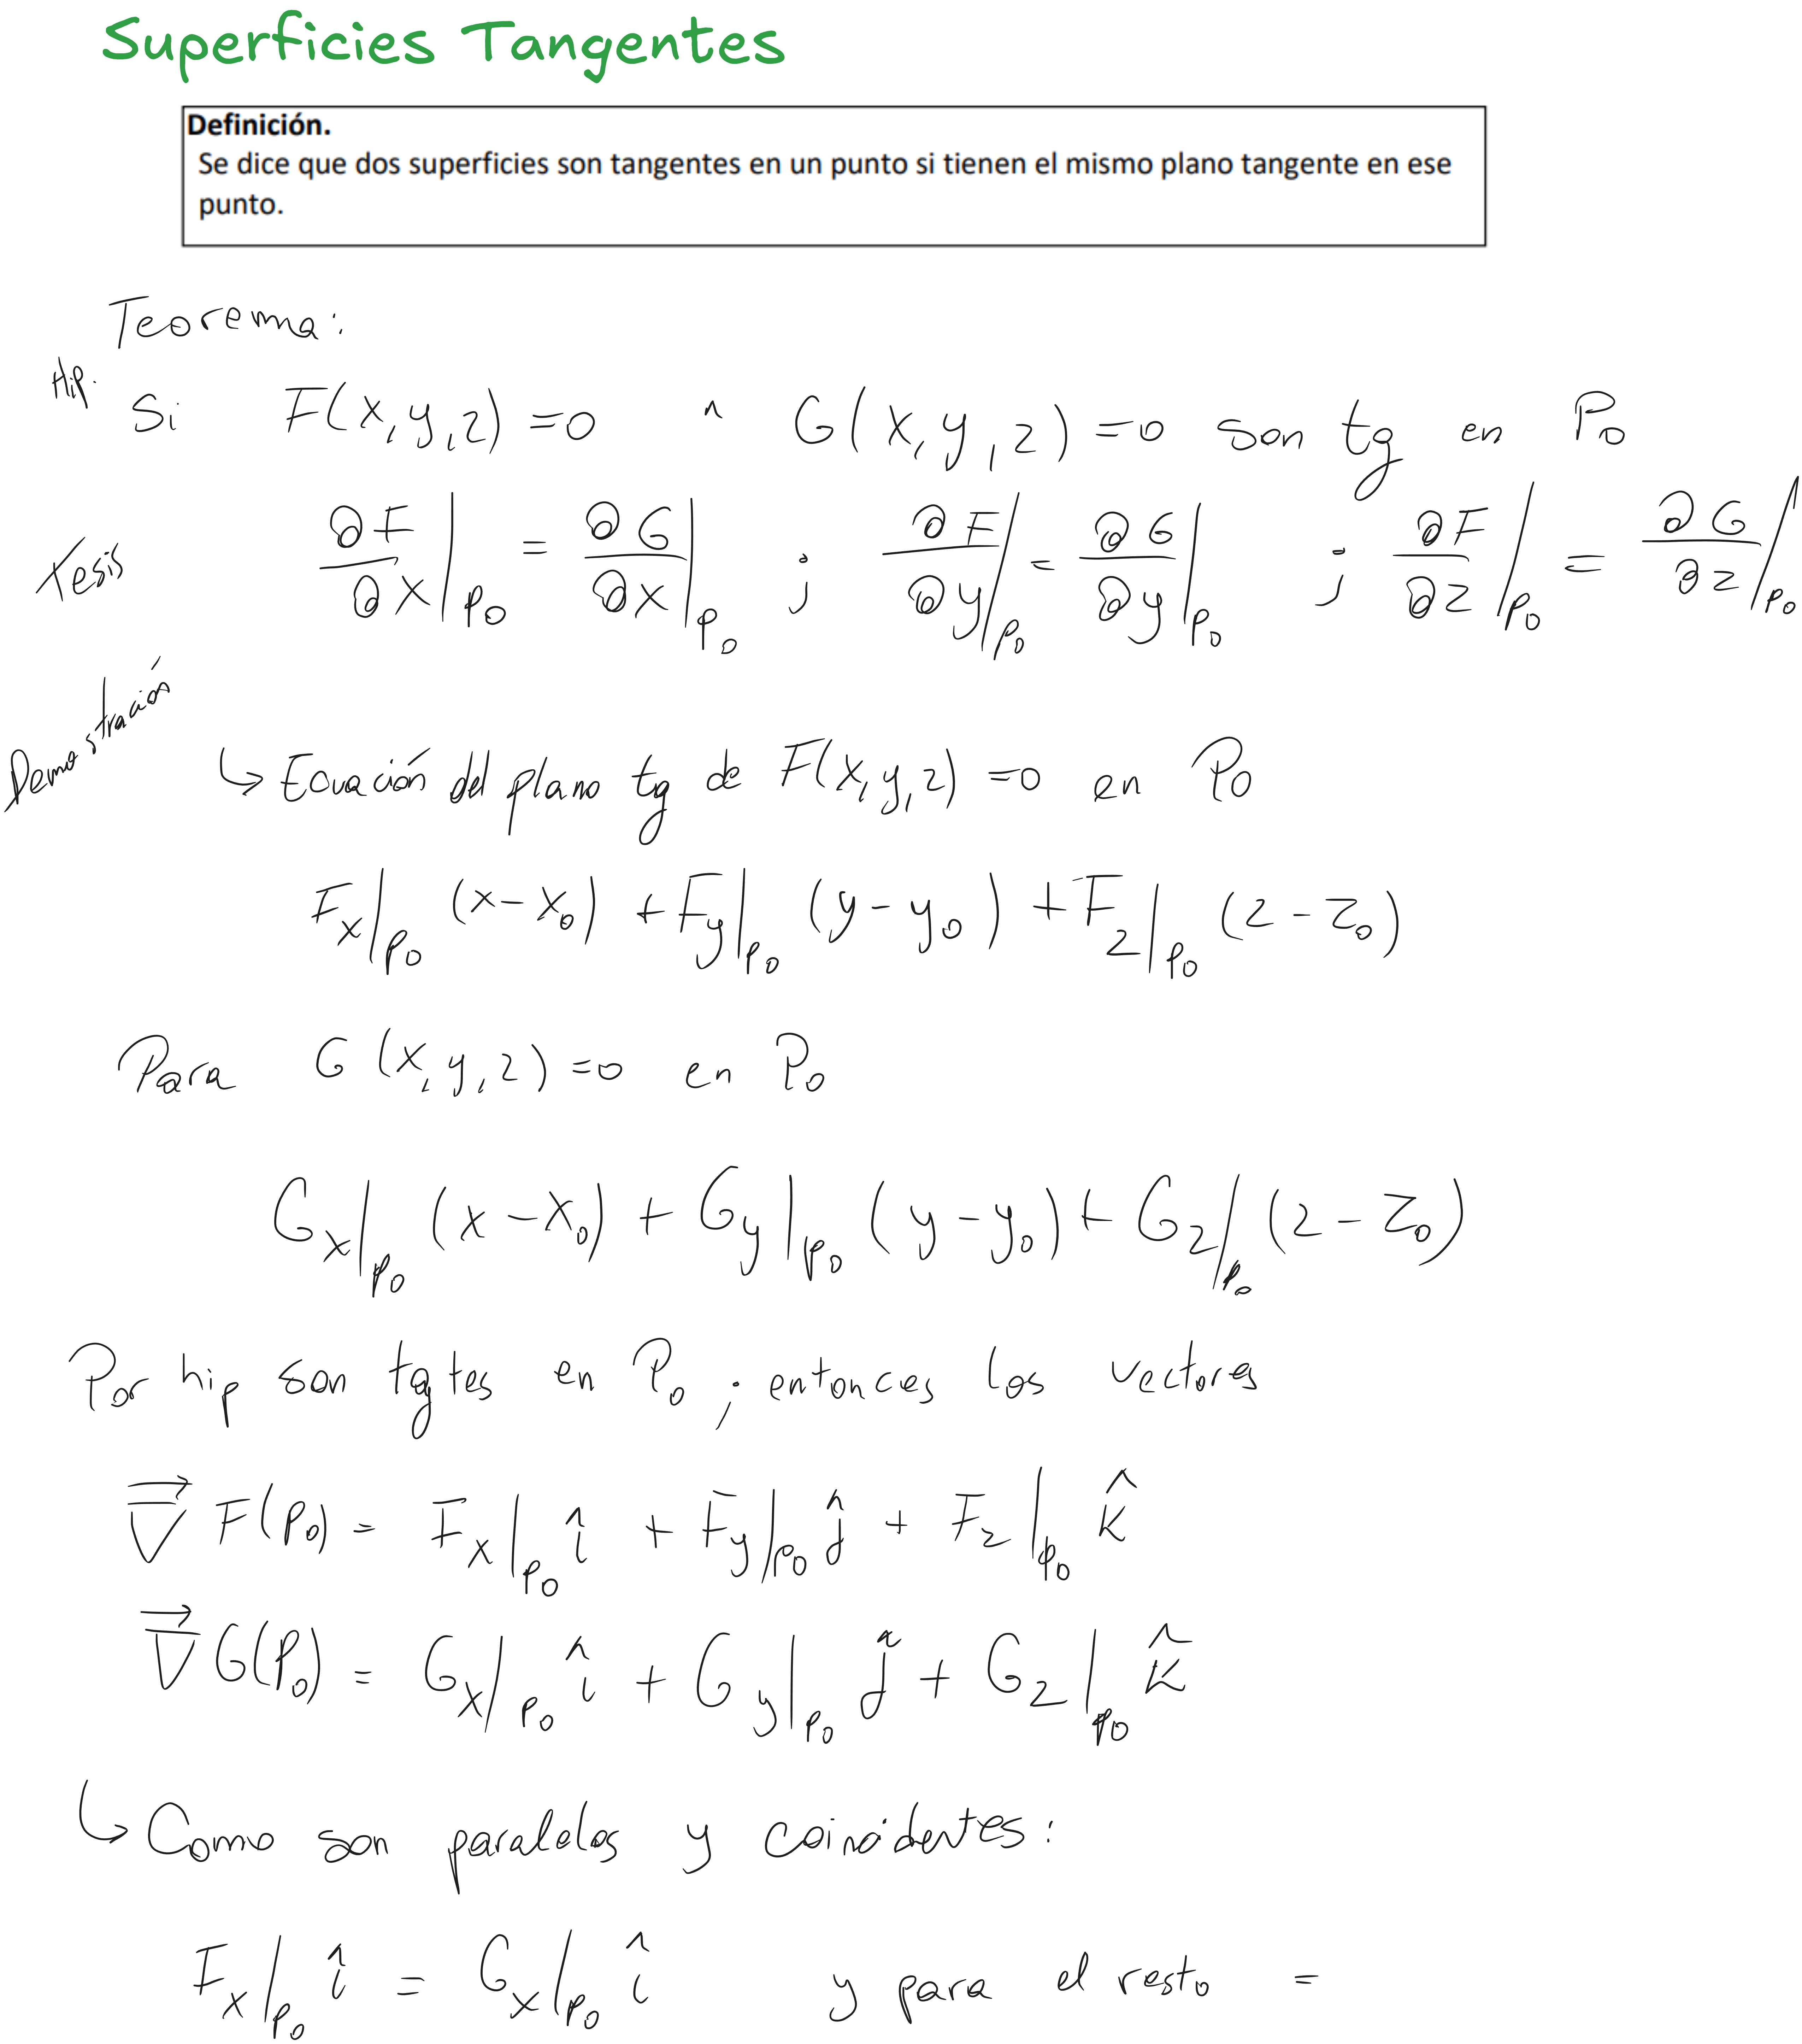 Superficies Tangentes
Definición.
Se dice que dos superficies son tangentes en un punto si tienen el mismo plano tangente en ese
punto.
Teorema:
Hip. Si F(x,y,z)=0 ^ G(x,y,z)=0 son tg en P₀
Tesis ∂F/∂x|P₀ = ∂G/∂x|P₀ ; ∂F/∂y|P₀ = ∂G/∂y|P₀ ; ∂F/∂z|P₀ = ∂G/∂z|P₀
Demostración
↳ Ecuación del plano tg de F(x,y,z)=0 en P₀
Fx|P₀ (x-x₀) + Fy|P₀ (y-y₀) + Fz|P₀ (z-z₀)
Para G(x,y,z)=0 en P₀
Gx|P₀ (x-x₀) + Gy|P₀ (y-y₀) + Gz|P₀ (z-z₀)
Por hip son tgtes en P₀ ; entonces los vectores
∇⃗ F(P₀) = Fx|P₀ î + Fy|P₀ ĵ + Fz|P₀ k̂
∇⃗ G(P₀) = Gx|P₀ î + Gy|P₀ ĵ + Gz|P₀ k̂
↳ Como son paralelos y coincidentes:
Fx|P₀ î = Gx|P₀ î y para el resto =